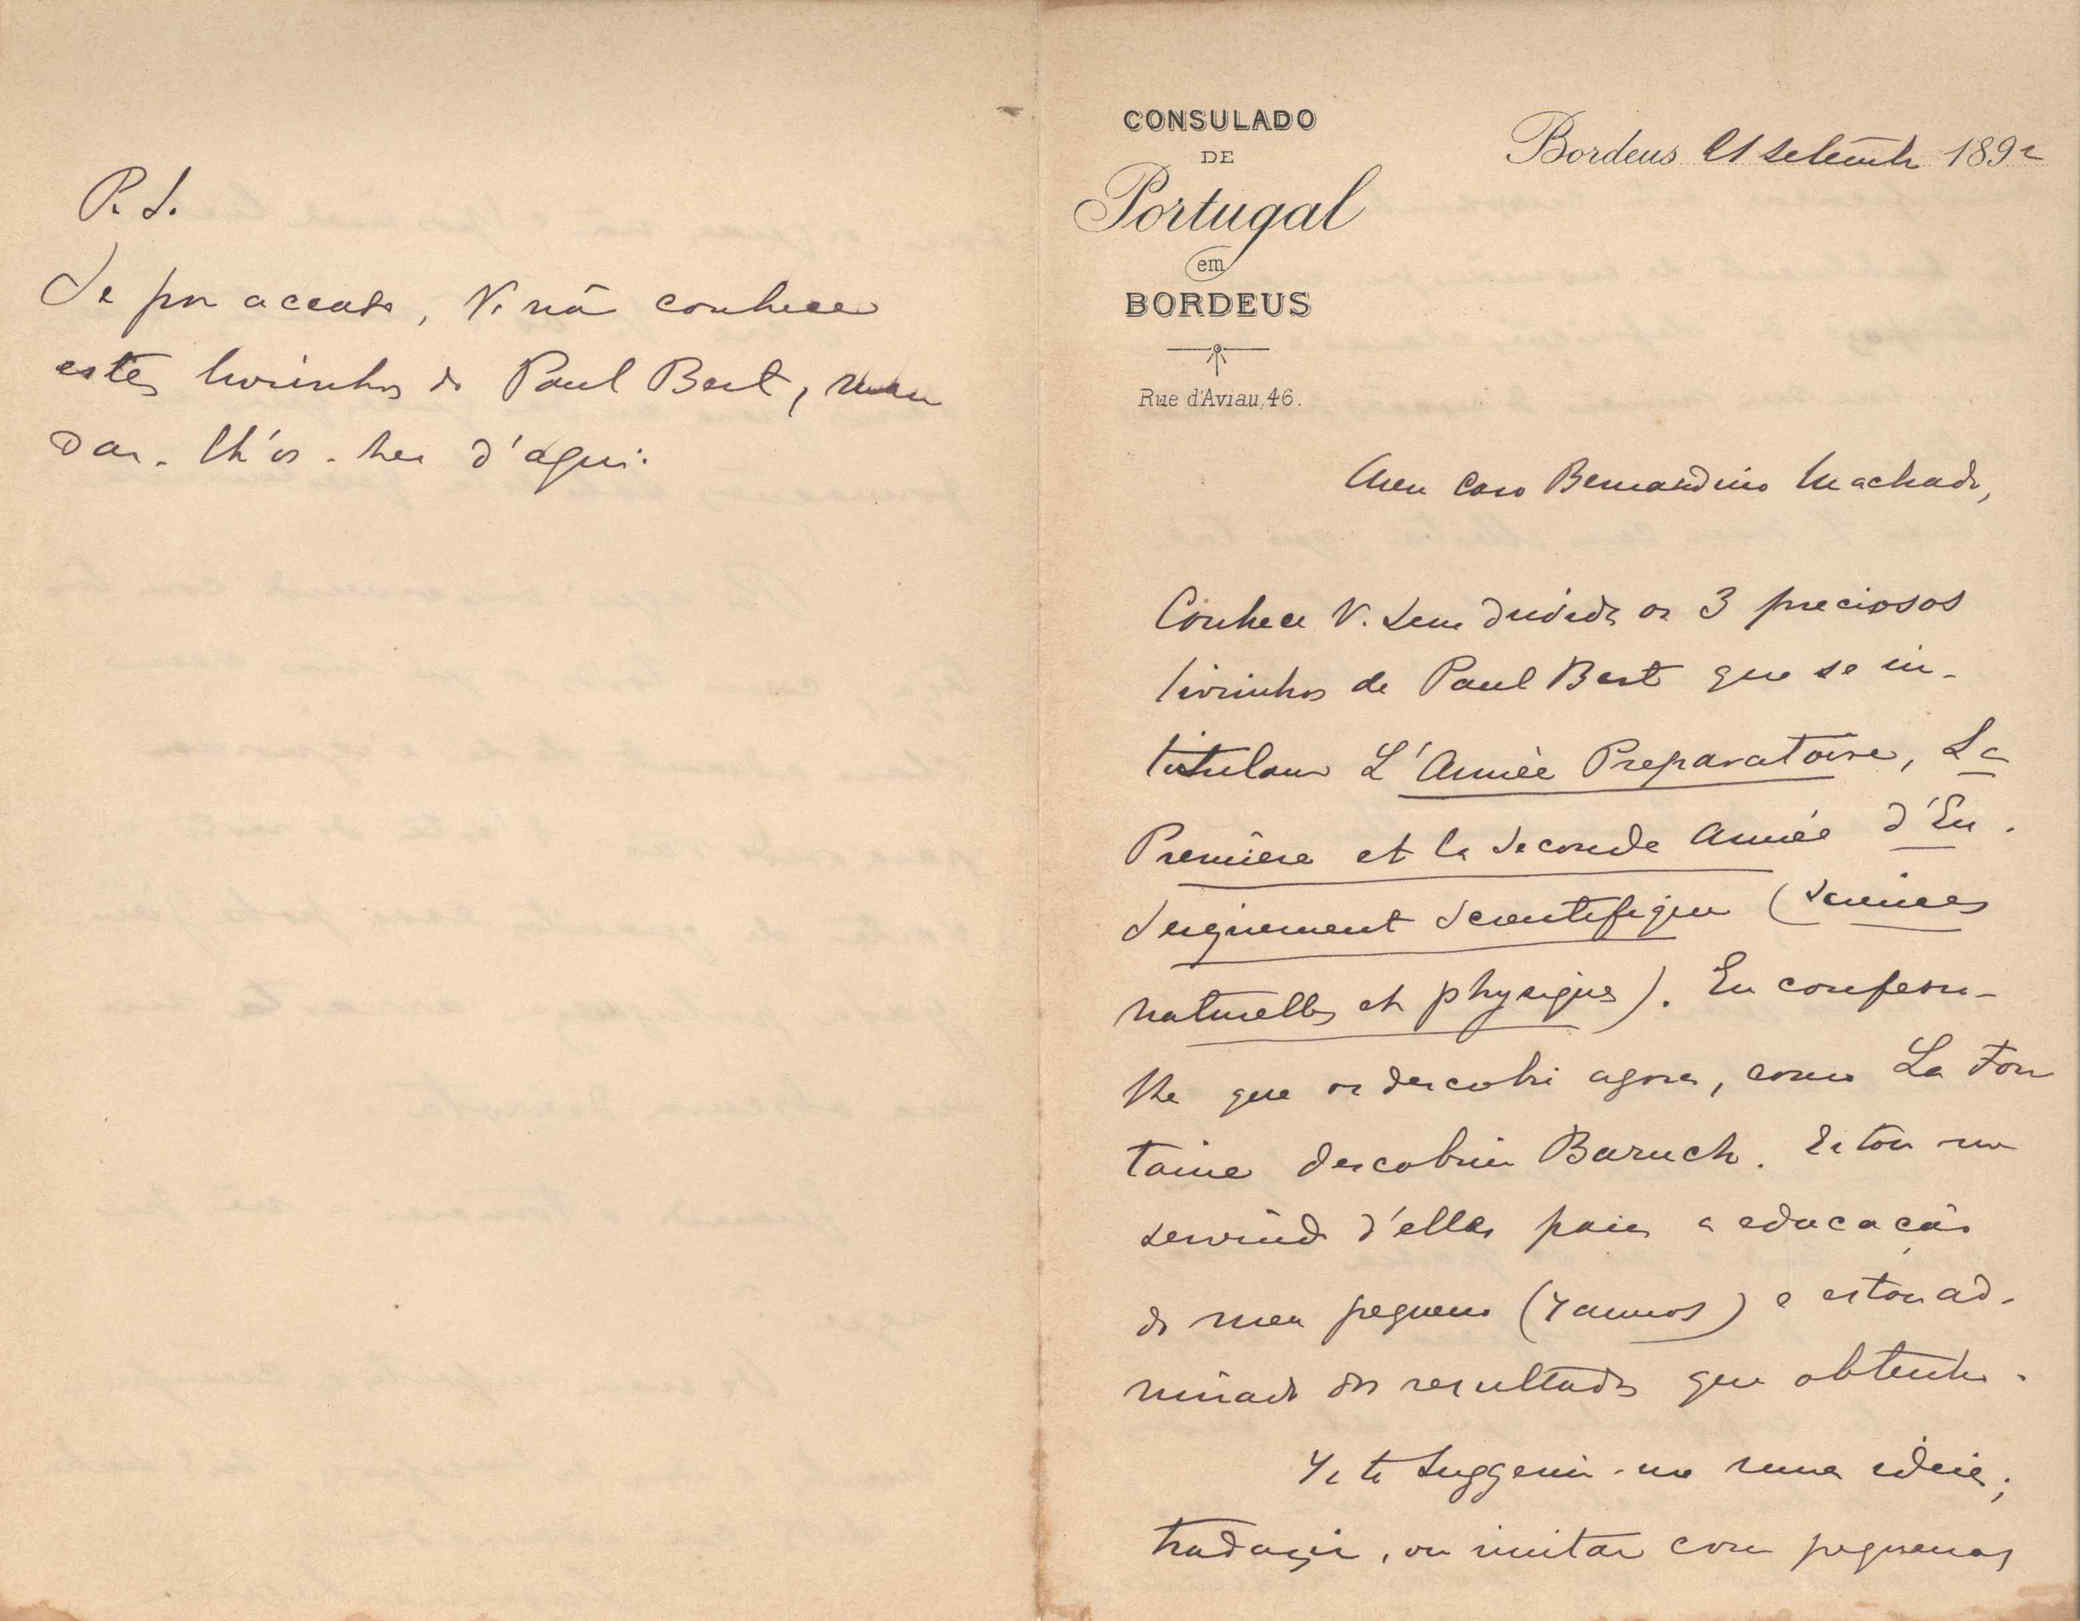 P. S.
Se por accaso, V. não conhece
estes livrinhos de Paul Bert, man
dar-lh'os-hei d'aqui.
CONSULADO
DE
Portugal
em
BORDEUS
Rue d'Aviau, 46.
Bordeus 21 setembro 1892
Meu caro Bernardino Machado,
Conhece V. sem duvida os 3 preciosos
livrinhos de Paul Bert que se in-
titulam L'Année Preparatoire, La
Première et la Seconde Année d'En-
seignement Scientifique (sciences
naturelles et physiques). Eu confesso-
lhe que os descobri agora, como La Fon
taine descobriu Baruch. Estou me
servindo d'elles para a educação
do meu pequeno (7 annos) e estou ad-
mirado dos resultados que obtenho.
Isto suggeriu-me uma idéia;
traduzir, ou imitar com pequenas